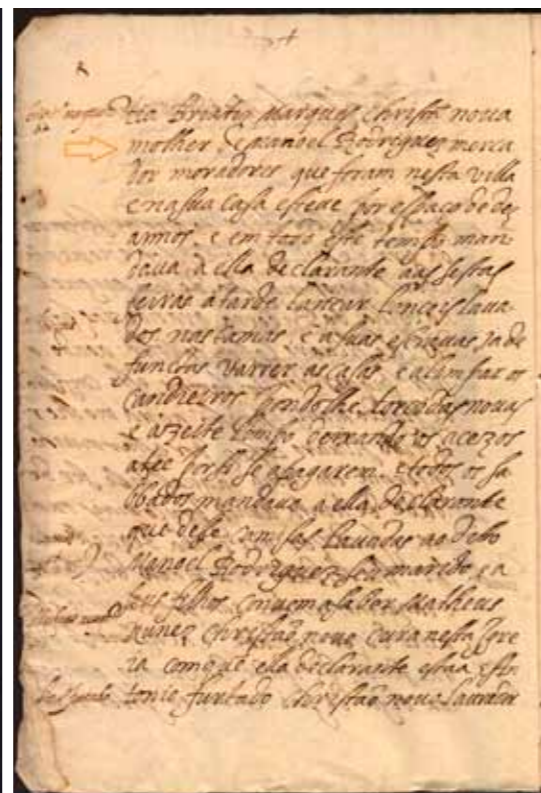 tia Briatis Marques Christã noua
molher de Manoel Rodriguez merca
dor moradores que foram nesta villa
e na sua casa esteue por espaço de dez
annos, e em todo este tempo man
daua a ella declarante aas sestas
feiras à tarde lançar lençois laua
dos nas camas, e a suas escrauas, ja de
functas varrer as casas, e alimpar os
candieiros pondolhe torcidas nouas
e azeite limpo deixando os acezos
atee per si se apagarem, e todos os sa
bbados mandaua a ella declarante
que desse camisas lauadas ao ditto
Manoel Rodriguez seu marido, e a
seus filhos conuem a saber Matheus
nunez christão nouo cura nesta Igre
ia com que ella declarante estaa, e An
tonio furtado christão nouo laurador